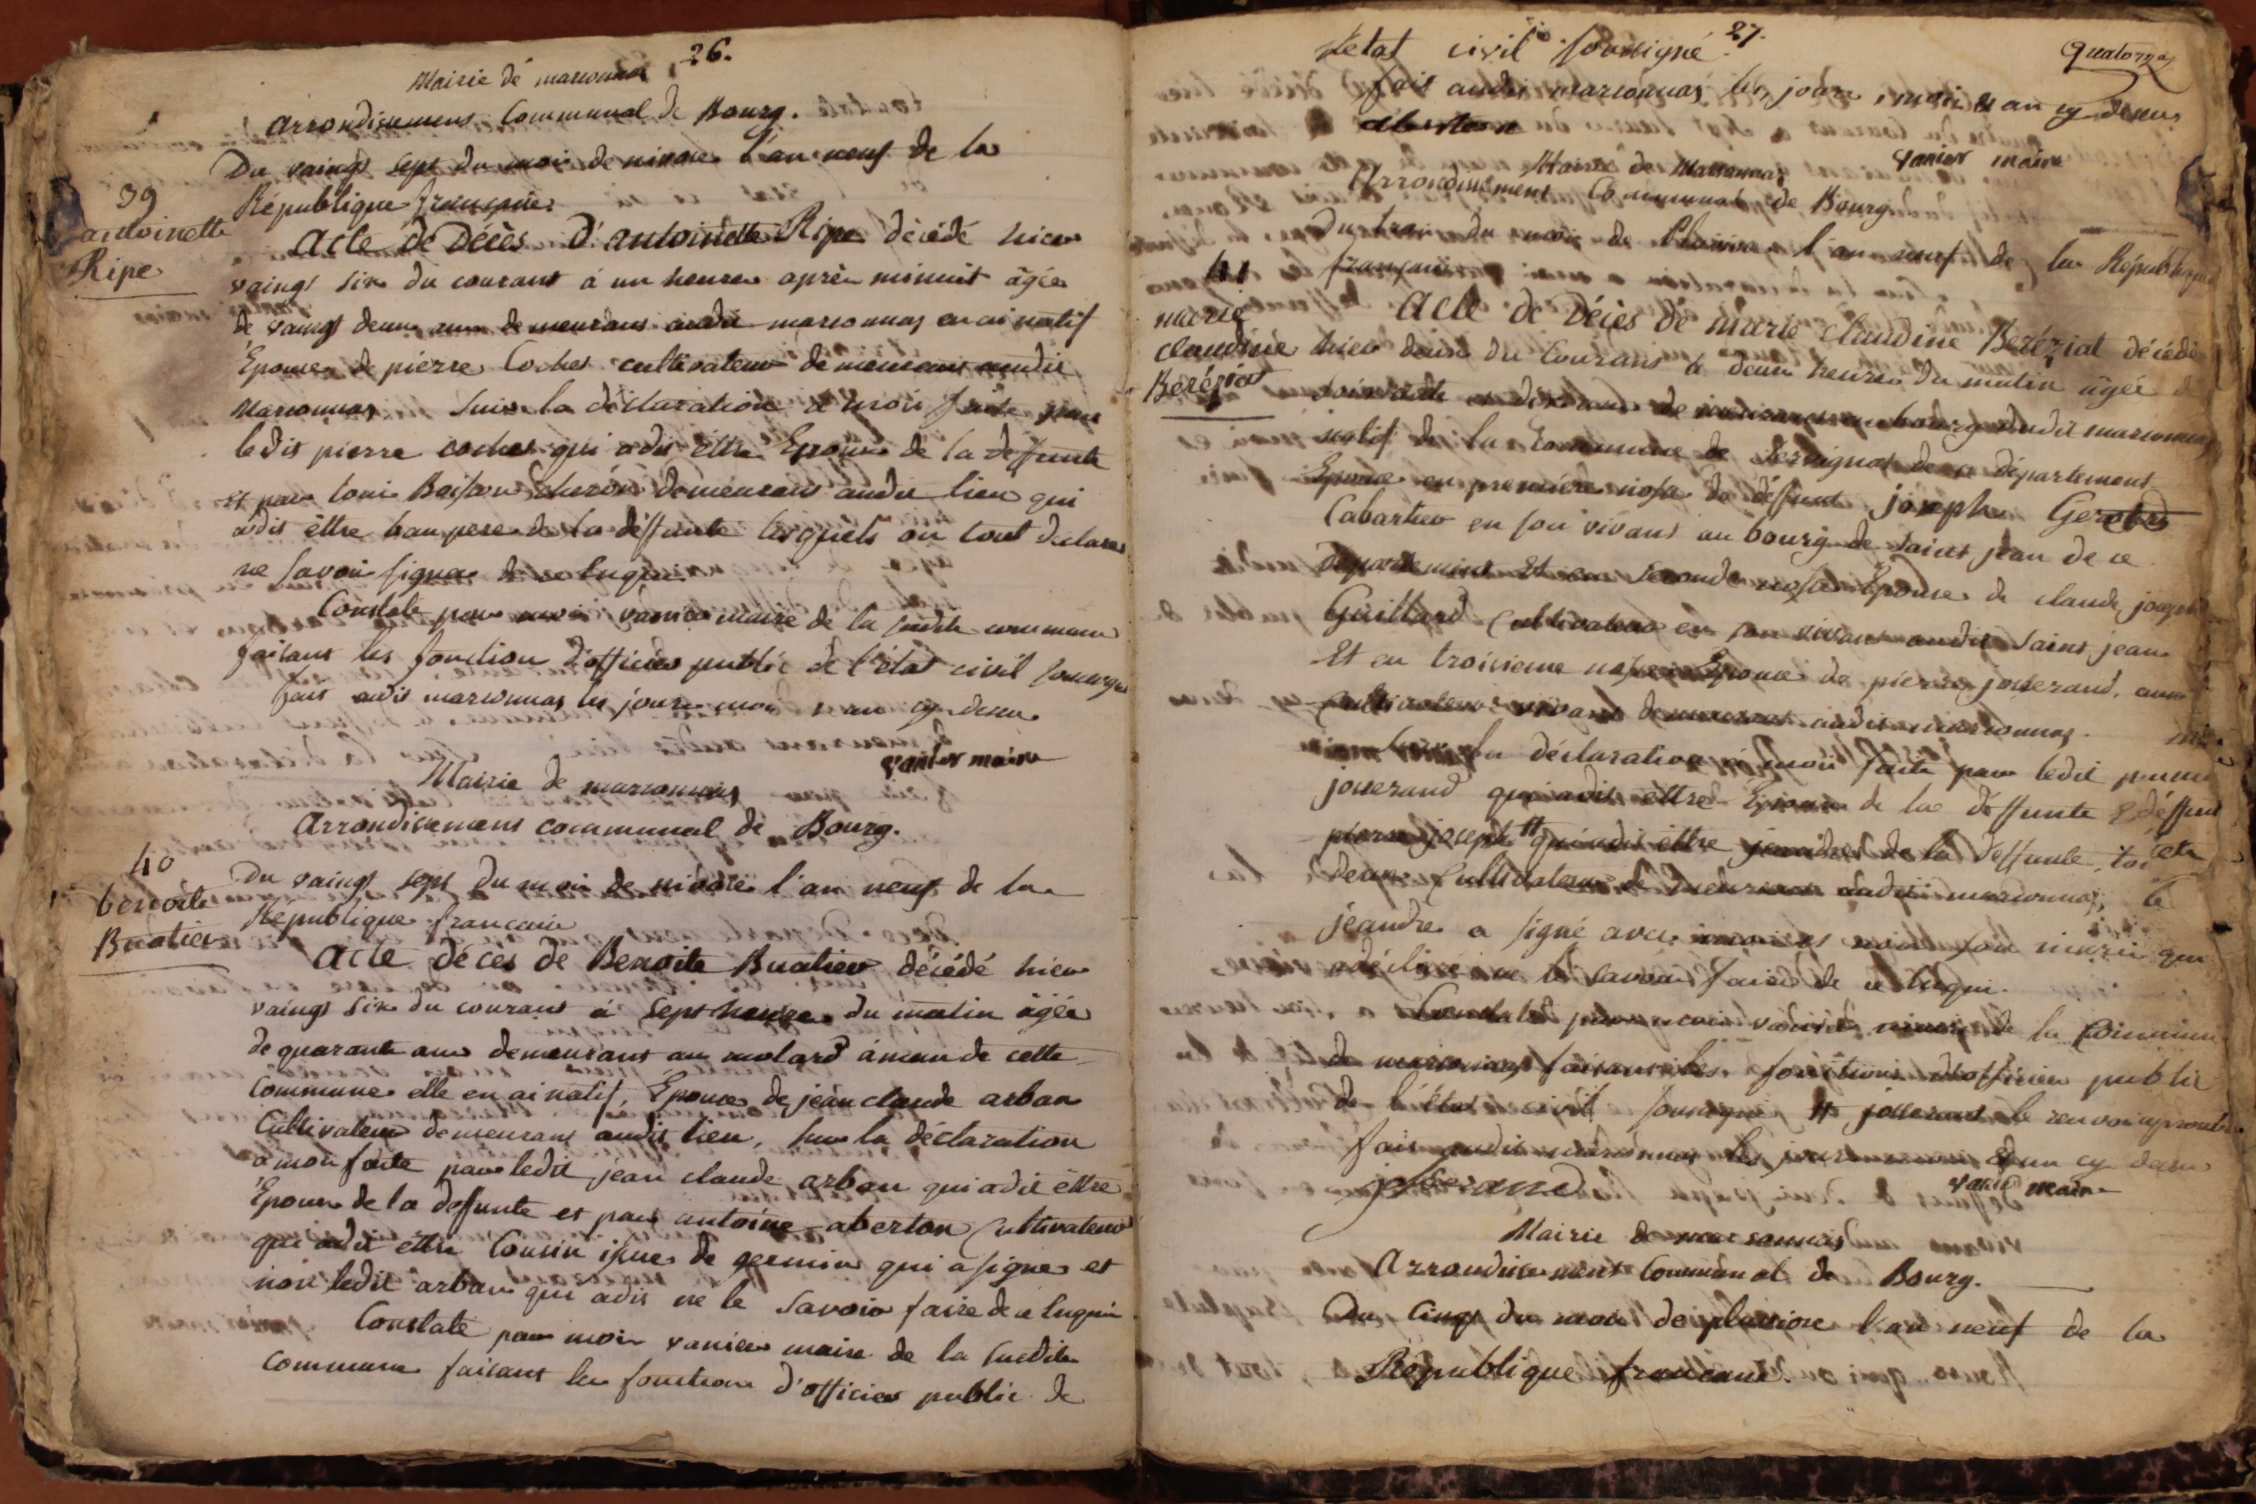 26.
Mairie de marsonnas
arrondisement Communal de Bourg.
Du vaingt sept du moi de nivose l'an neuf de la
République française
39
antoinette
Ripe
Acte de Décès d'antoinette Ripe décédé hier
vaingt six du courant à un heure après minuit âgée
de vaingt deux ans demeurant audit marsonnas en ai natif
Epouse de pierre Cochet cultivateur demeurant audit
Marsonnas Suiv la déclaration a moi faite par
ledit pierre cochet qui a dit êttre Epoux de la deffunte
et par demeurant audit lieu qui
a dit êttre beau pere de la deffunte lesquels on tout declaré
ne savoir signer de ce
Constaté par moi vanier maire de la susdite commune
faisant les fonction d'officier public de l'état civil
fait audit marsonnas les jour moi et an cy desus
vanier maire
Mairie de marsonnas
arrondisement communal de Bourg.
40
benoite
Buatier
Du vaingt sept du moi de nivose l'an neuf de la
République francaise
Acte décès de Benoite Buatier décédé hier
vaingt six du courant à sept heure du matin âgée
de quarante ans demeurant au molard de cette
Commune elle en ai natif, Epouse de jean claude arban
Cultivateur demeurant audit lieu, sur la déclaration
a moi faite par ledit jean claude arban qui a dit êttre
Epoux de la deffunte et par antoine aberton Cultivateur
qui a dit êttre Cousin isue de germin qui a signe et
non ledit arban qui a dit ne le savoir faire de ce
Constaté par moi vanier maire de la susdite
Commune faisant les fonction d'officier public de
27.
l'état civil sousigné
quatorze
fait audit marsonnas les jour, moi et an cy desus
aberton
vanier maire
Mairie de Marsonnas
Arrondisement Communal de Bourg
Du troi du moi de Pluviose l'an neuf de la République
française
41
marie
claudine
Beréziat
Acte de Décès de marie claudine Beréziat décédé
hier deux du Courant à deux heure du matin âgée de
soixante et dix ans demeurant au bourg dudit marsonnas
natif de la Commune de de ce département
Epouse en premiere nose de deffunt joseph
Cabartier en son vivant au bourg de saint jean de ce
département Et en seconde nose Epouse de claude joseph
Guillard Cultivateur en son vivant audit saint jean
Et en troisieme nose Epouse de pierre josserand,
Cultivateur vivant demeurant audit marsonnas.
Sur la déclaration a moi faite par ledit pierre
josserand qui a dit êttre Epoux de la deffunte
pierre joseph qui a dit êttre de la deffunte, tout
deux Cultivateur demeurant audit marsonnas, le
a signé avec moi et non son
a déclaré ne le savoir faire de ce
Constaté par moi vanier maire de la Commune
de marsonnas faisant les fonctions d'officier public
de l'état civil sousigné josserand le renvoi aprouvé
fait audit marsonnas les jour moi et an cy desu
josserand
vanier maire
Mairie de marsonnas
Arrondisement Communal de Bourg.
Du cinq du moi de pluviose l'an neuf de la
République francaise.